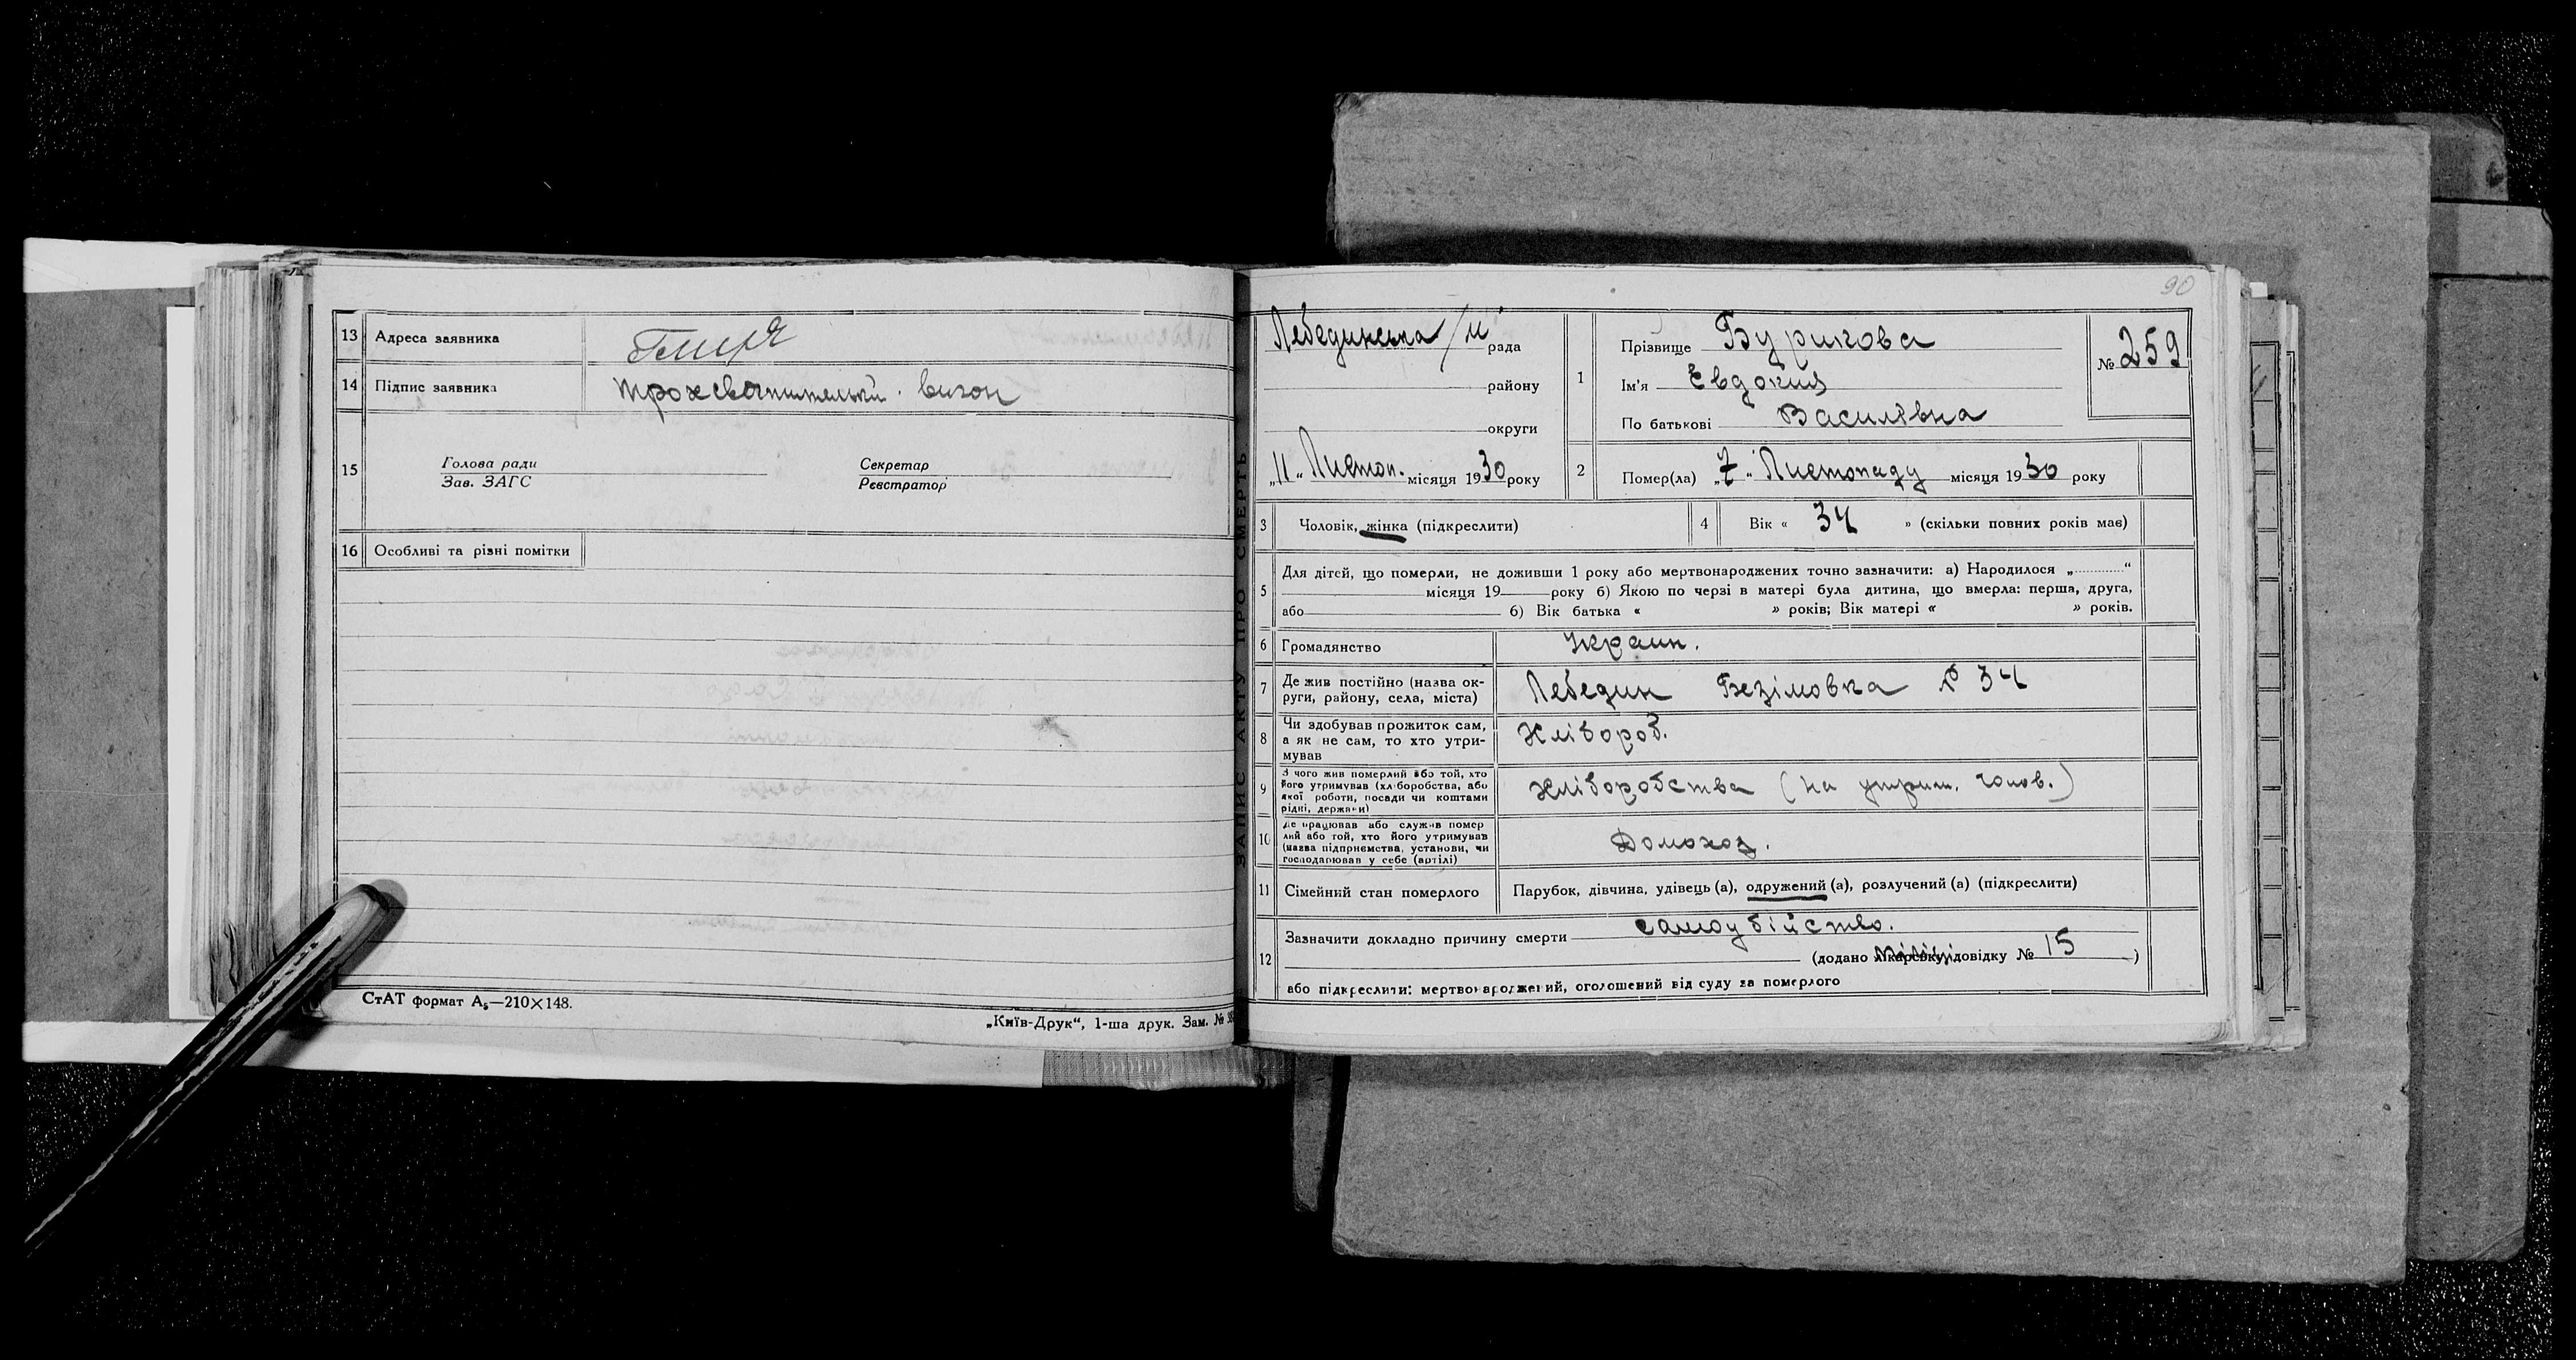 13 Адреса заявника
14 Підпис заявника Трохсвятительський вигон
15 Голова ради Секретар
Зав. ЗАГС Реєстратор
16 Особливі та різні помітки
СтАТ формат А₅—210×148.
„Київ-Друк“, 1-ша друк. Зам. №
ЗАПИС АКТУ ПРО СМЕРТЬ
90
Лебединська /м рада
району
округи
„11“ Листоп. місяця 1930 року
1 Прізвище Бурикова
Ім'я Євдокия
По батькові Василівна
№ 259
2 Помер(ла) „7“ Листопаду місяця 1930 року
3 Чоловік, жінка (підкреслити)
4 Вік « 34 » (скільки повних років має)
5 Для дітей, що померли, не доживши 1 року або мертвонароджених точно зазначити: а) Народилося „ “
місяця 19 року б) Якою по черзі в матері була дитина, що вмерла: перша, друга,
або б) Вік батька « » років; Вік матері « » років.
6 Громадянство Україн.
7 Де жив постійно (назва ок-
руги, району, села, міста) Лебедин Безімовка № 34
8 Чи здобував прожиток сам,
а як не сам, то хто утри-
мував Хлібороб.
9 З чого жив померлий або той, хто
його утримував (хліборобства, або
якої роботи, посади чи коштами
рідні, держави) Хліборобства (на утрим. чолов.)
10 Де працював або служив помер
лий або той, хто його утримував
(назва підприємства, установи, чи
господарював у себе (артілі) Домохоз.
11 Сімейний стан померлого Парубок, дівчина, удівець (а), одружений (а), розлучений (а) (підкреслити)
12 Зазначити докладно причину смерти самоубійство.
(додано лікарську довідку № 15 )
або підкреслити: мертвонароджений, оголошений від суду за померлого